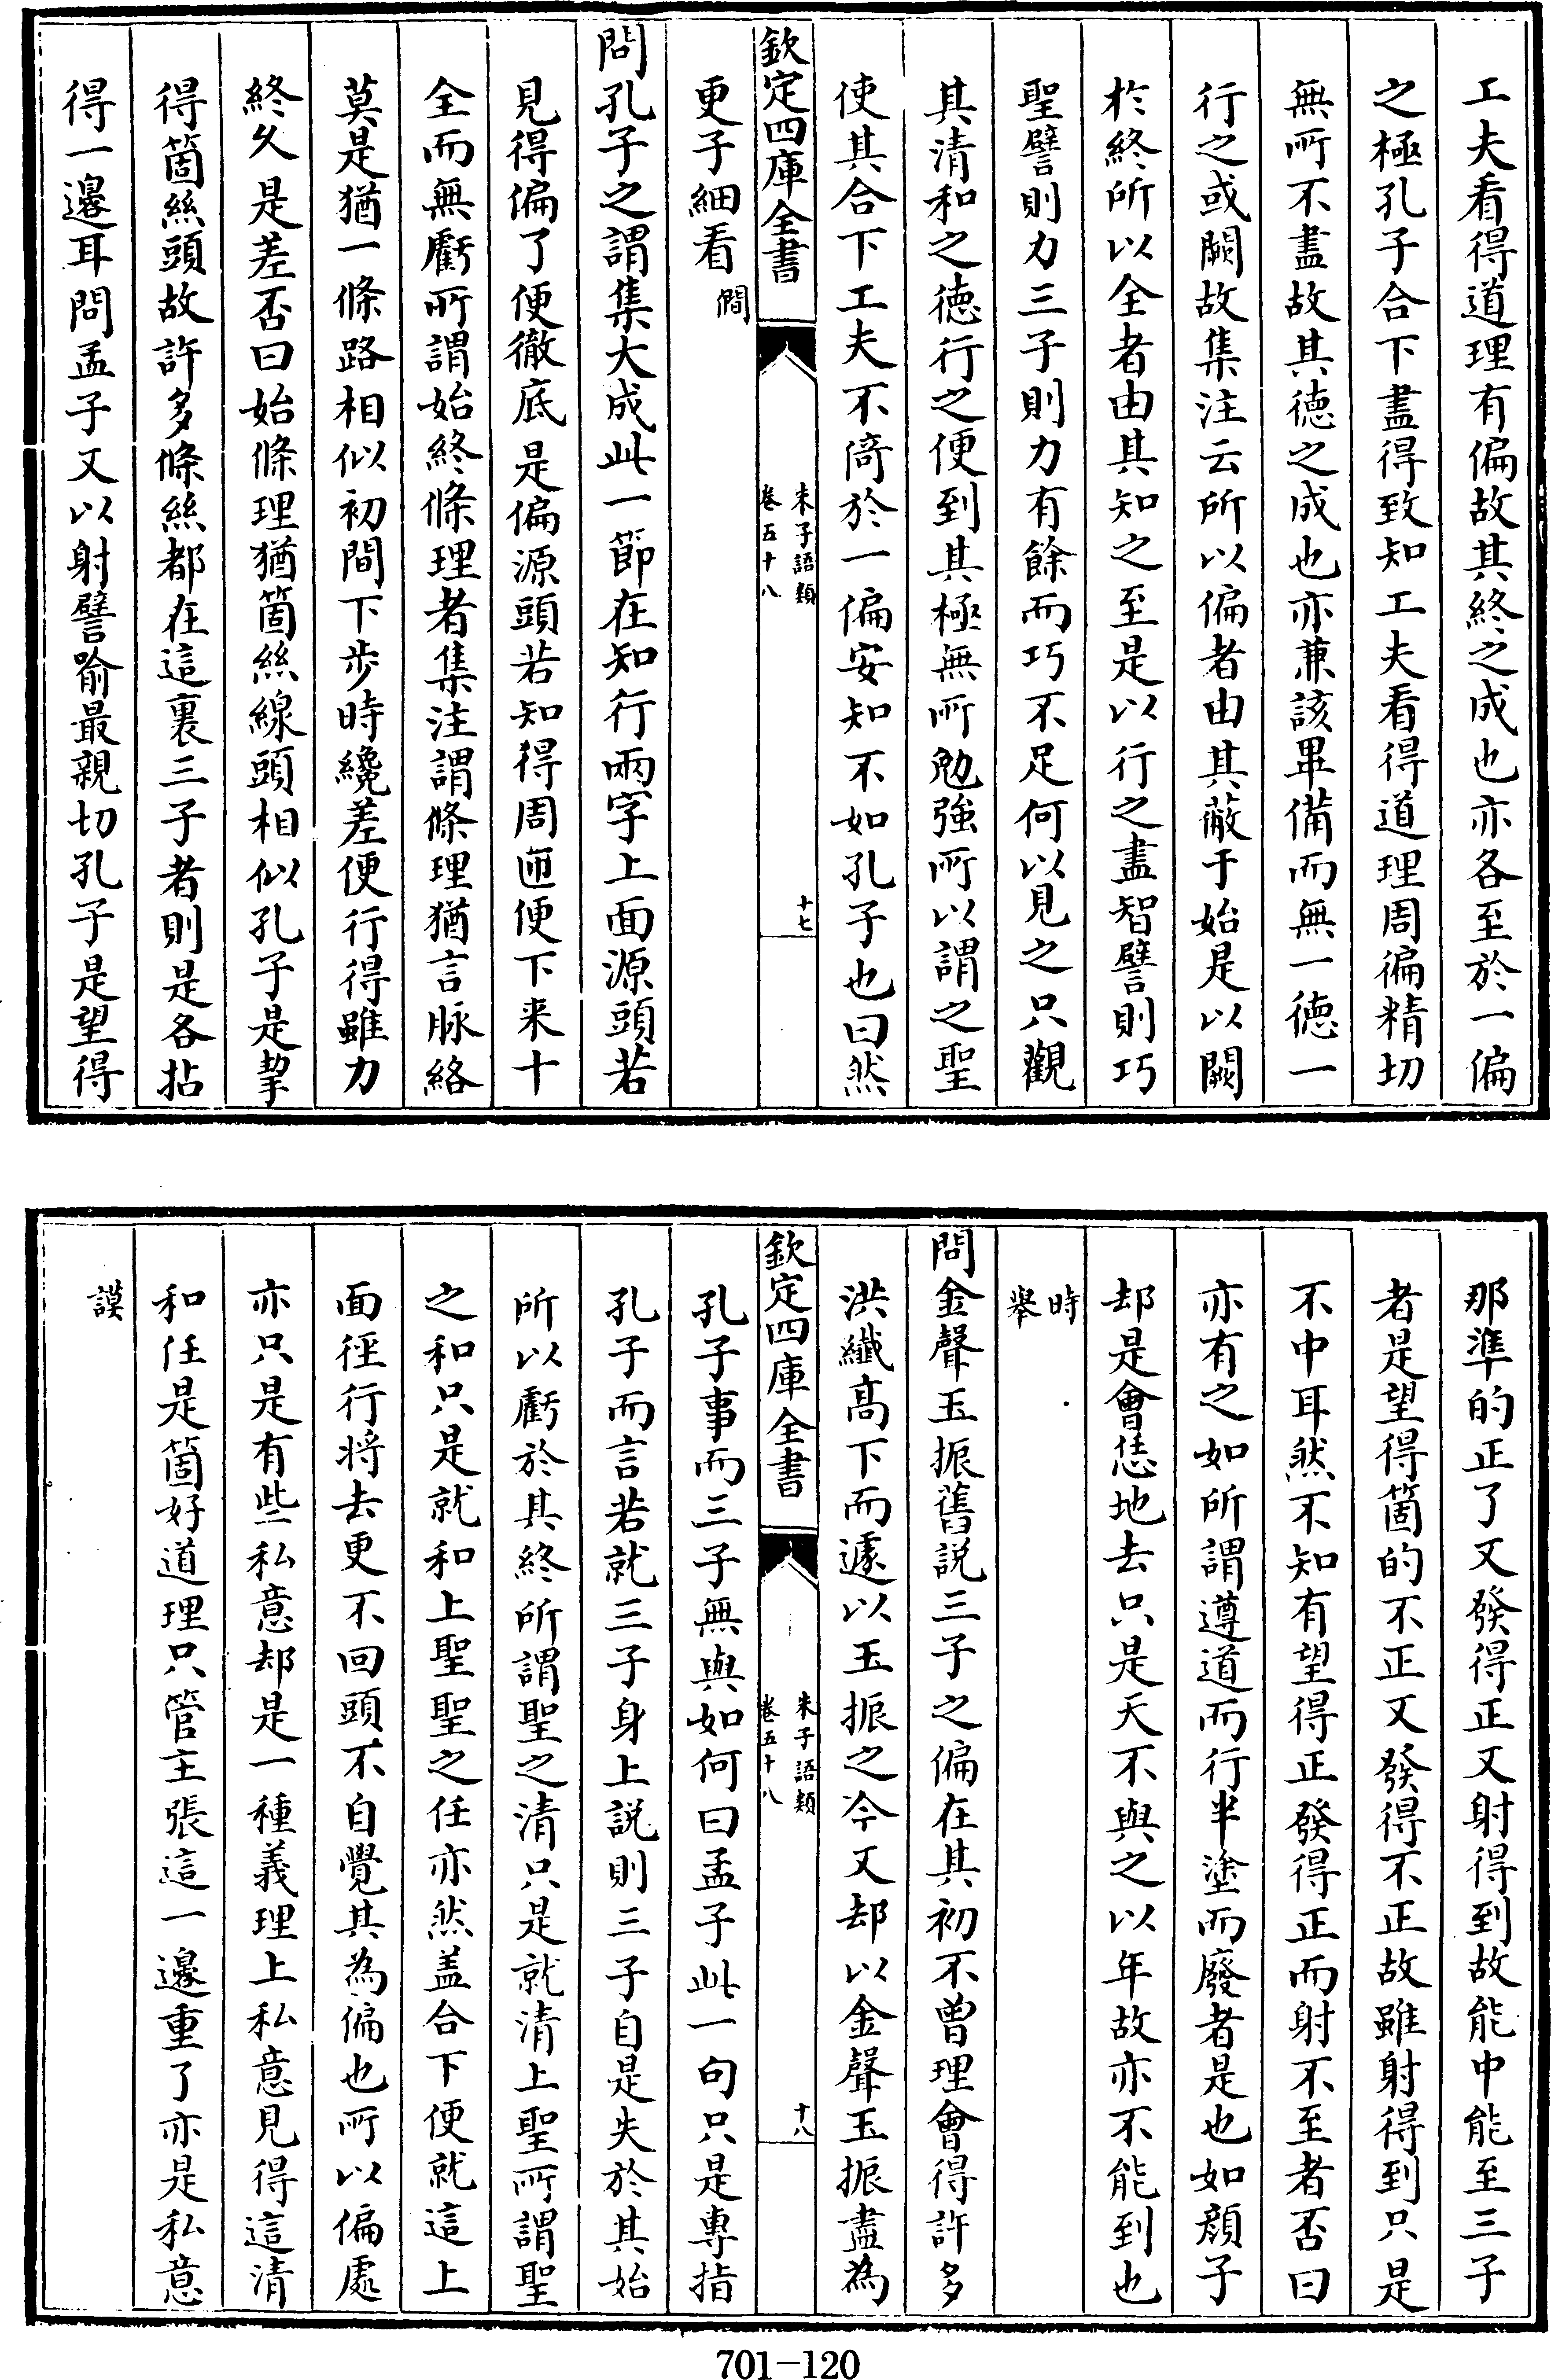 工夫看得道理有偏故其終之成也亦各至於一偏
之極孔子合下盡得致知工夫看得道理周徧精切
無所不盡故其德之成也亦兼該畢備而無一德一
行之或闕故集注云所以偏者由其蔽于始是以闕
於終所以全者由其知之至是以行之盡智譬則巧
聖譬則力三子則力有餘而巧不足何以見之只觀
其清和之德行之便到其極無所勉強所以謂之聖
使其合下工夫不倚於一偏安知不如孔子也曰然
欽定四庫全書
朱子語類
卷五十八
十七
更子細看 僩
問孔子之謂集大成此一節在知行兩字上面源頭若
見得偏了便徹底是偏源頭若知得周匝便下来十
全而無虧所謂始終條理者集注謂條理猶言脉絡
莫是猶一條路相似初間下步時纔差便行得雖力
終久是差否曰始條理猶箇絲線頭相似孔子是挈
得箇絲頭故許多條絲都在這裏三子者則是各拈
得一邊耳問孟子又以射譬喻最親切孔子是望得
那準的正了又發得正又射得到故能中能至三子
者是望得箇的不正又發得不正故雖射得到只是
不中耳然不知有望得正發得正而射不至者否曰
亦有之如所謂遵道而行半塗而廢者是也如顔子
却是會恁地去只是天不與之以年故亦不能到也
時
舉
問金聲玉振舊説三子之偏在其初不曽理會得許多
洪纎髙下而遽以玉振之今又却以金聲玉振盡為
欽定四庫全書
朱子語類
卷五十八
十八
孔子事而三子無與如何曰孟子此一句只是專指
孔子而言若就三子身上説則三子自是失於其始
所以虧於其終所謂聖之清只是就清上聖所謂聖
之和只是就和上聖聖之任亦然盖合下便就這上
面徑行将去更不回頭不自覺其為偏也所以偏處
亦只是有些私意却是一種義理上私意見得這清
和任是箇好道理只管主張這一邊重了亦是私意
謨
701-120